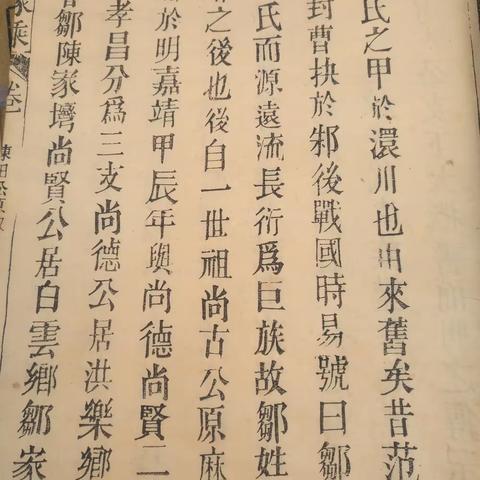 氏之甲於澴川也由來舊矣昔范
封曹挾於邾後戰國時易號曰鄒
氏而源遠流長衍爲巨族故鄒姓
之後也後自一世祖尚古公原麻
於明嘉靖甲辰年與尚德尚賢二
孝昌分爲三支尚德公居洪樂鄉
鄒陳家塆尚賢公居白雲鄉鄒家
家乘 卷